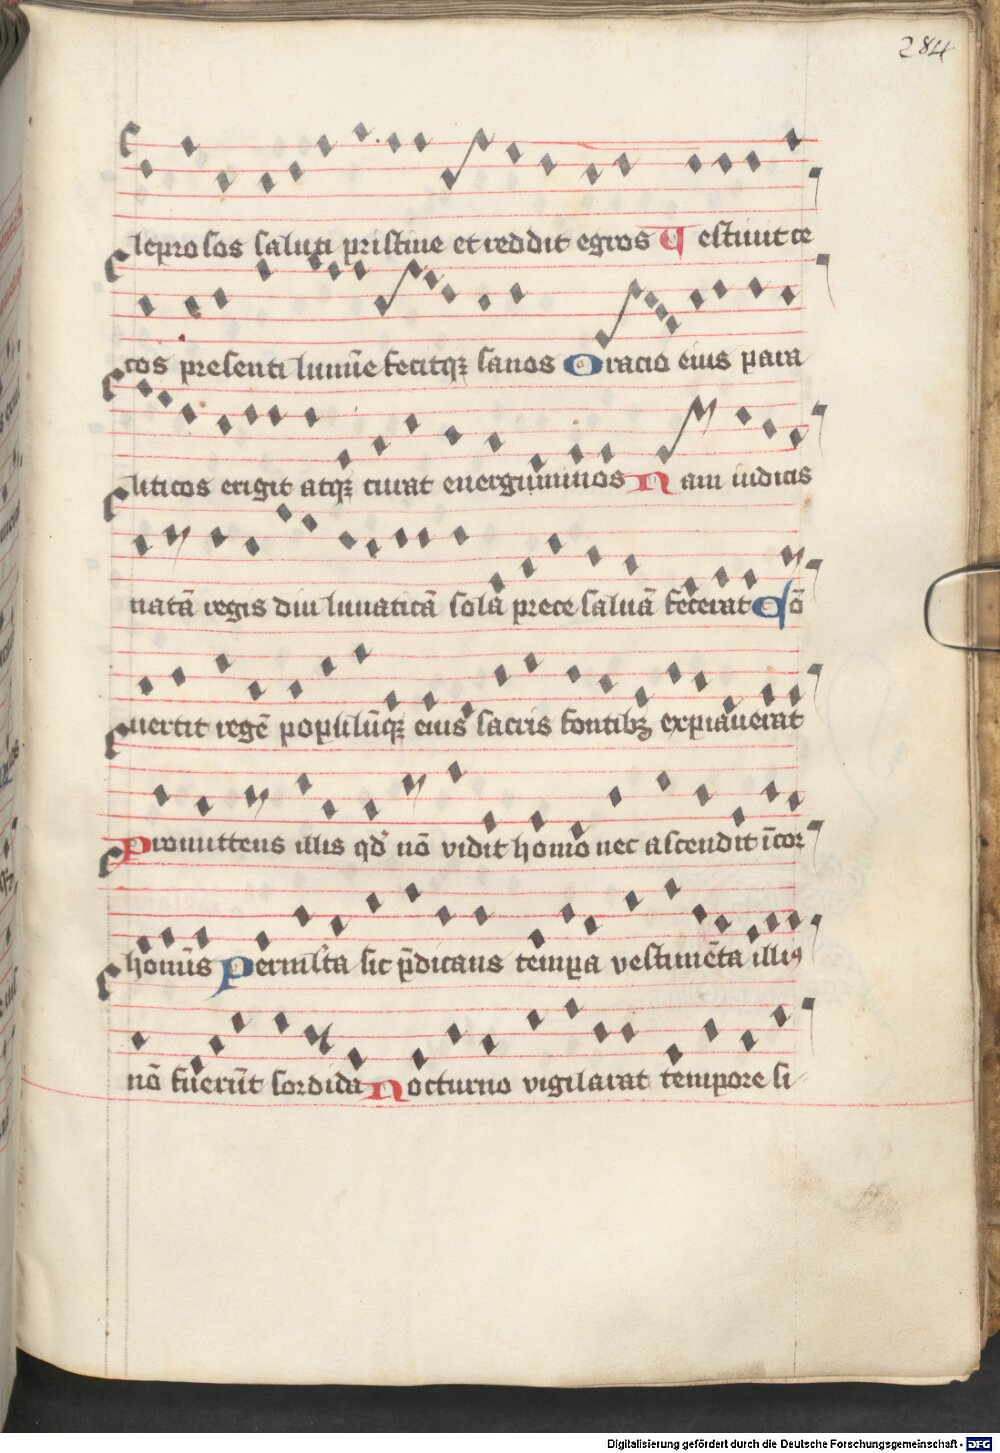 284
leprosos saluti pristine et reddit egros C estiuit ce
cos presenti lumīe fecitqꝫ sanos Oracio eius para
liticos erigit atqꝫ curat energuminos Nam iudicis
natā regis diu lunaticā sola prece saluā fecerat Cō
uertit regē populūqꝫ eius sacris fontibꝫ expiauerat
Promittens illis qd' nō vidit homo nec ascendit ī cor
homīs Per multa sic p̄dicans tempora vestimēta illiꝰ
nō fuerūt sordida Nocturno vigilarat tempore si
Digitalisierung gefördert durch die Deutsche Forschungsgemeinschaft - DFG